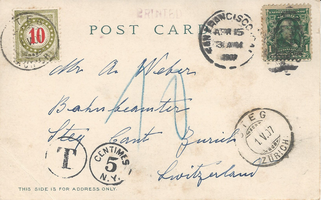 10
POST CARD
SAN FRANCISCO, CAL.
APR 15
1907
Mr. A. Weber
Bahnbeamter
Steg Cant. Zürich
Switzerland
T
CENTIMES
5
N.Y.
10
EG
1.V.07
ZÜRICH
THIS SIDE IS FOR ADDRESS ONLY